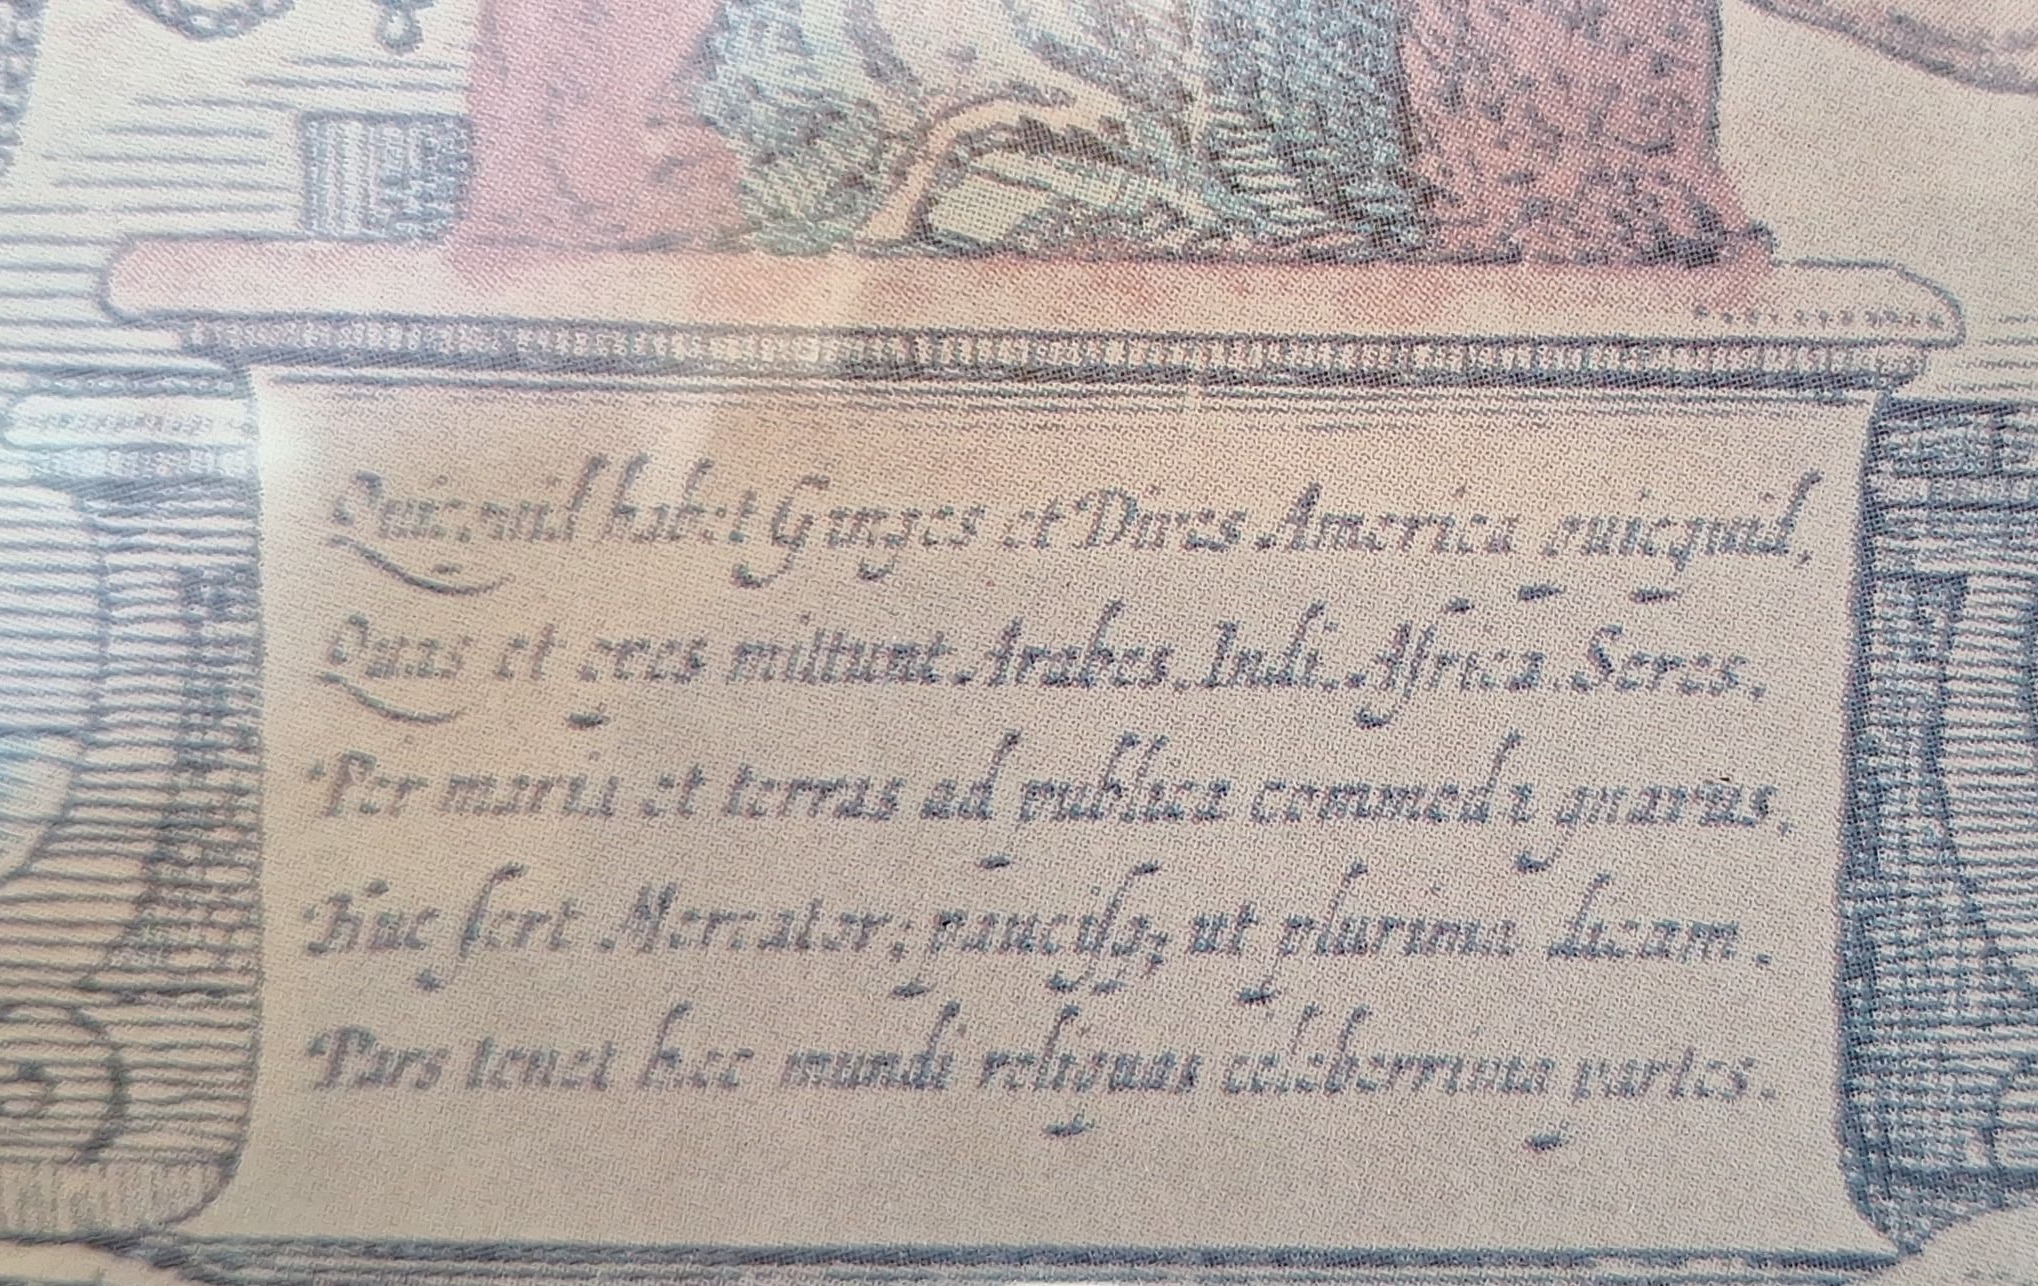 Quicquid habet Ganges et Dives America quicquid,
Quas et opes mittunt Arabes, Indi, Africa, Seres.
Per maria et terras ad publica commoda gnarus,
Huc fert Mercator; paucisq; ut plurima dicam.
Pars tenet haec mundi reliquas celeberrima partes.